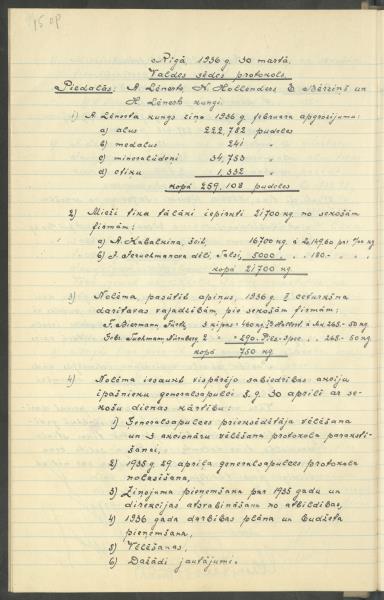 Rīgā 1936 g. 30 martā.
Valdes sēdes protokols.
Piedalās: A. Lēnerts, K. Hollenders, E. Bērziņš un
H. Lēnerts kungi.
1) A. Lēnerta kungs ziņo 1936 g. februara apgrozījumu:
a) alus 222,782 pudeles
b) medalus 241 "
c) minerālūdeņi 34,753 "
d) etiķa 1,332 "
kopā 259,108 pudeles
2) Mieži tika tālāki iepirkti 21700 kg no sekošām
firmām:
a) A. Kabalkina, šeit, 16700 kg. à
b) Talsi, 5000 " " 180.- " "
kopā 21700 kg
3) Nolēma, pasūtīt apiņus, 1936 g. II ceturkšņa
darītavas vajadzībām, pie sekošām firmām:
F. Biermann, Fürth, 3 ķīpas - 460 kg 265-50 kg
Gebr. Tuchmann, Nürnberg 2 " - 290 " 265-50 kg
kopā 750 kg
4) Nolēma iesaukt vispārējo sabiedrības akciju
īpašnieku generalsapulci š. g. 30 aprīlī ar se-
košu dienas kārtību:
1) Generalsapulces priekšsēdētāja vēlēšana
un 3 akcionāru vēlēšana protokola parakstī-
šanai,
2) 1935 g. 29 aprīļa generalsapulces protokola
nolasīšana,
3) Ziņojuma pieņemšana par 1935 gadu un
direkcijas atsvabināšana no atbildības,
4) 1936 gada darbības plāna un budžeta
pieņemšana,
5) Vēlēšanas,
6) Dažādi jautājumi.